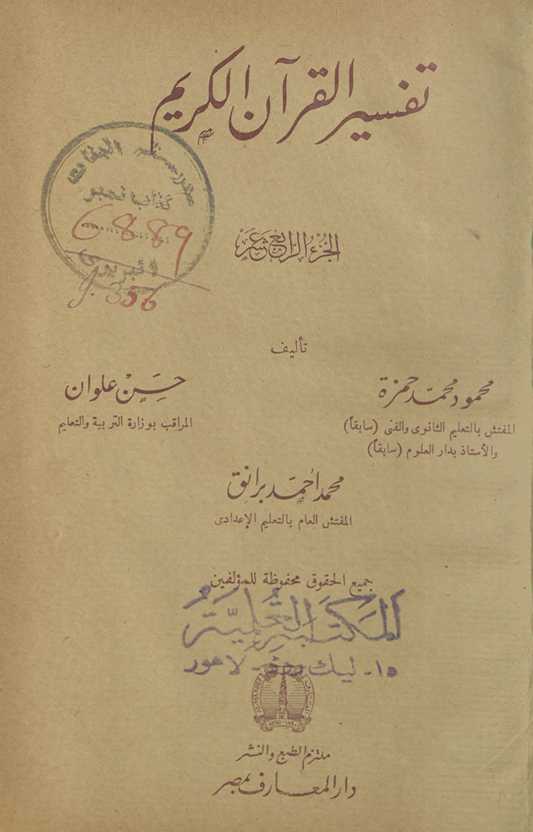 تفسير القرآن الكريم
كتاب نمبر
6889
J. 356
الجزء الرابع عشر
تأليف
محمود محمد حمزة
المفتش بالتعليم الثانوى والفنى (سابقاً)
والأستاذ بدار العلوم (سابقاً)
حسن علوان
المراقب بوزارة التربية والتعليم
محمد أحمد برانق
المفتش العام بالتعليم الإعدادى
جميع الحقوق محفوظة للمؤلفين
المكتبة العلمية
١٥- ليك روڈ - لاهور
ملتزم الطبع والنشر
دار المعارف بمصر